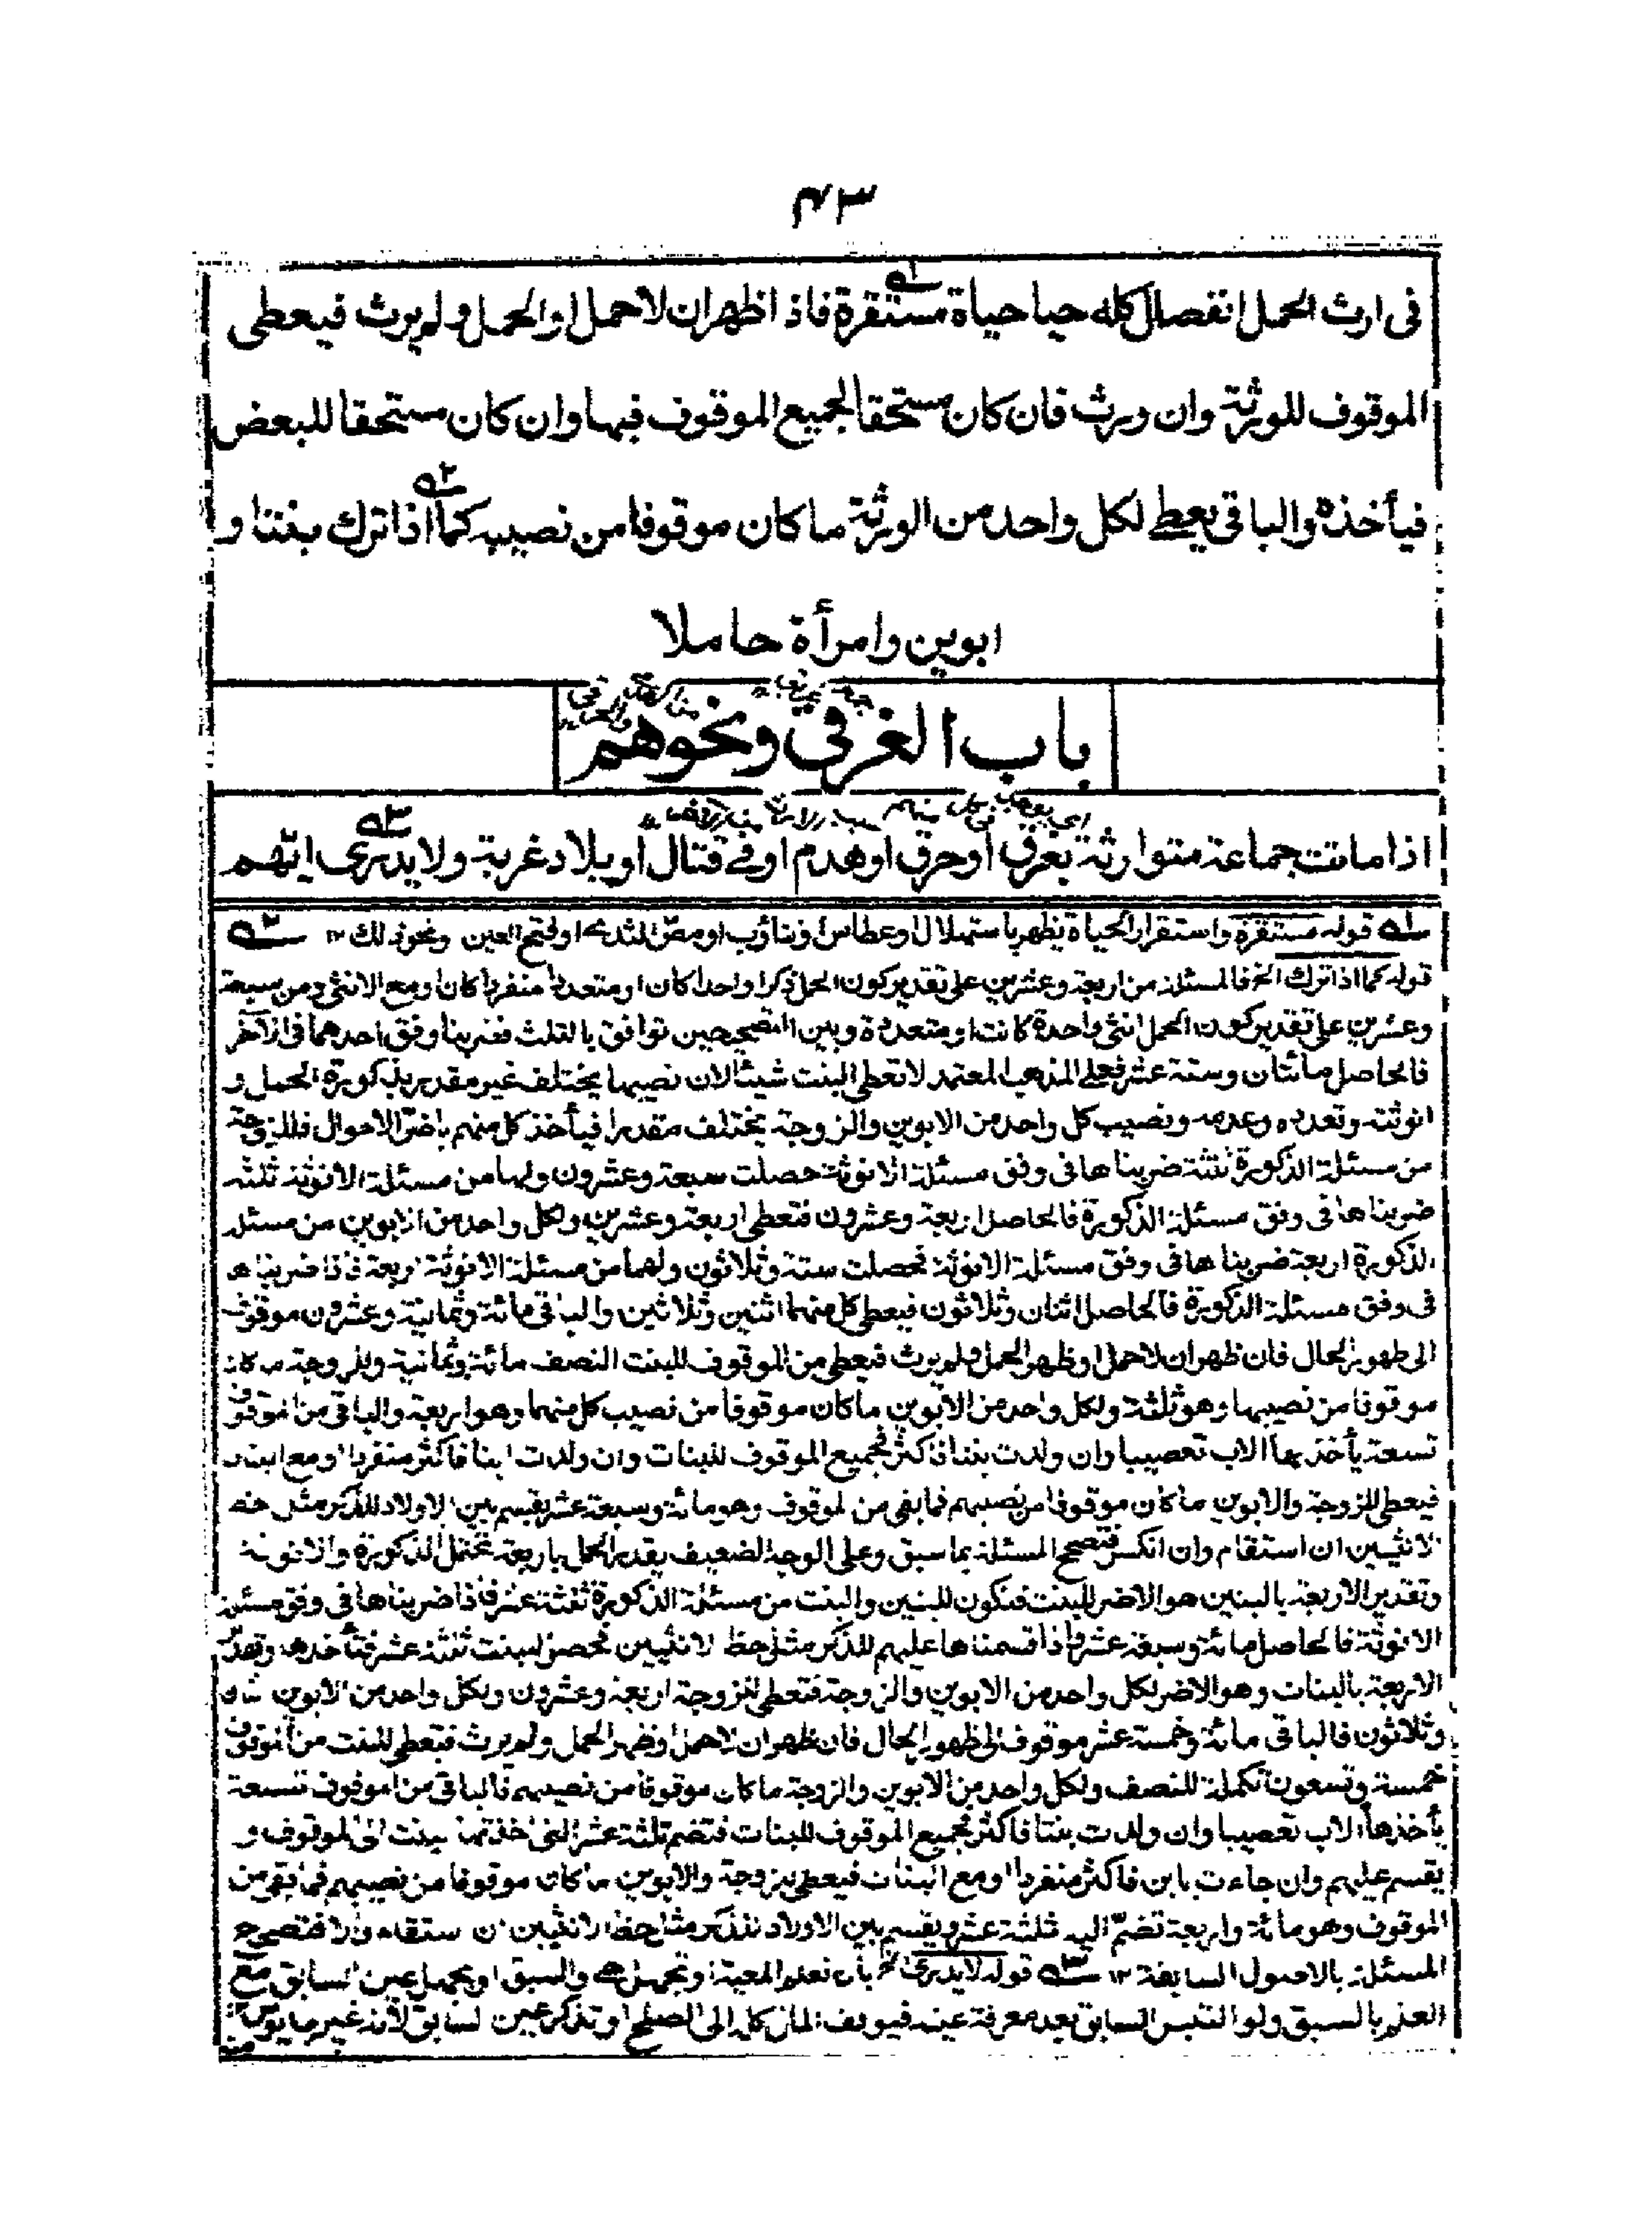 ٤٣
في ارث الحمل انفصال كله حيا حياة مستقرة فاذا ظهر ان لاحمل او الحمل ولم يرث فيعطى
الموقوف للورثة وان ورث فان كان مستحقا لجميع الموقوف فبها وان كان مستحقا للبعض
فيأخذه والباقي يعطى لكل واحد من الورثة ما كان موقوفا من نصيبه كما اذا ترك بنتا و
ابوين وامرأة حاملا
باب الغرقى ونحوهم
اذا ماتت جماعة متوارثة بغرق او حرق او هدم او في قتال او ببلاد غربة ولا يدرى ايهم
قوله مستقرة واستقرار الحياة يظهر باستهلال او عطاس او تثاؤب او مص الثدي او لفتح العين ونحو ذلك ١٢
قوله كما اذا ترك الخ فالمسئلة من اربعة وعشرين على تقدير كون الحمل ذكرا واحدا كان او متعددا منفردا كان او مع الانثى ومن سبعة
وعشرين على تقدير كون الحمل انثى واحدة كانت او متعددة وبين التصحيحين توافق بالثلث فضربنا وفق احدهما في الآخر
فالحاصل مائتان وستة عشر فعلى المذهب المعتمد لا تعطى البنت شيئا لان نصيبها يختلف غير مقدر بذكورة الحمل و
انوثته وتعدده وعدمه ونصيب كل واحد من الابوين والزوجة يختلف مقدرا فيأخذ كل منهم باضر الاحوال فللزوجة
من مسئلة الذكورة ثلثة ضربناها في وفق مسئلة الانوثة حصلت سبعة وعشرون ولها من مسئلة الانوثة ثلثة
ضربناها في وفق مسئلة الذكورة فالحاصل اربعة وعشرون فتعطى اربعة وعشرين ولكل واحد من الابوين من مسئلة
الذكورة اربعة ضربناها في وفق مسئلة الانوثة فحصلت ستة وثلاثون ولهما من مسئلة الانوثة اربعة فاذا ضربناها
في وفق مسئلة الذكورة فالحاصل اثنان وثلاثون فيعطى كل منهما اثنين وثلاثين والباقي مائة وثمانية وعشرون موقوف
الى ظهور الحال فان ظهر ان لاحمل او ظهر الحمل ولم يرث فيعطى من الموقوف للبنت النصف مائة وثمانية وللزوجة ما كان
موقوفا من نصيبها وهو ثلثة ولكل واحد من الابوين ما كان موقوفا من نصيب كل منهما وهو اربعة والباقي من الموقوف
تسعة يأخذ بها الاب تعصيبا وان ولدت بنتا فاكثر فجميع الموقوف للبنات وان ولدت ابنا فاكثر منفردا او مع ابنت
فيعطى للزوجة والابوين ما كان موقوفا من نصيبهم فما بقي من الموقوف وهو مائة وسبعة عشر يقسم بين الاولاد للذكر مثل حظ
الانثيين ان استقام وان انكسر فتصحح المسئلة بما سبق وعلى الوجه الضعيف يقدر الحمل باربعة تحتمل الذكورة والانوثة
وتقدير الاربعة بالبنين هو الاضر للبنت فتكون للبنين والبنت من مسئلة الذكورة ثلثة عشر فاذا ضربناها في وفق مسئلة
الانوثة فالحاصل مائة وسبعة عشر فاذا قسمناها عليهم للذكر مثل حظ الانثيين فحصل للبنت ثلثة عشر فتأخذها وتقدر
الاربعة بالبنات وهو الاضر لكل واحد من الابوين والزوجة فتعطى للزوجة اربعة وعشرون ولكل واحد من الابوين
وثلاثون فالباقي مائة وخمسة عشر موقوف الى ظهور الحال فان ظهر ان لاحمل او ظهر الحمل ولم يرث فتعطى للبنت من الموقوف
خمسة وتسعون تكملة للنصف ولكل واحد من الابوين والزوجة ما كان موقوفا من نصيبهم فالباقي من الموقوف تسعة
يأخذها الاب تعصيبا وان ولدت بنتا فاكثر فجميع الموقوف للبنات فتضم ثلثة عشر التي اخذتها البنت الى الموقوف و
يقسم عليهم وان جاءت بابن فاكثر منفردا او مع البنات فيعطى للزوجة والابوين ما كان موقوفا من نصيبهم فما بقي من
الموقوف وهو مائة واربعة تضم اليه ثلثة عشر ويقسم بين الاولاد للذكر مثل حظ الانثيين ان استقام والا فتصحح
المسئلة بالاصول السابقة ١٢ قوله لا يدرى الخ بان تعلم المعية او تجهل هي والسبق او يجهل عين السابق مع
العلم بالسبق ولو التبس السابق بعد معرفة عينه فيوقف المال كله الى الصلح او تذكر عين السابق لانه غير مايوس
منه